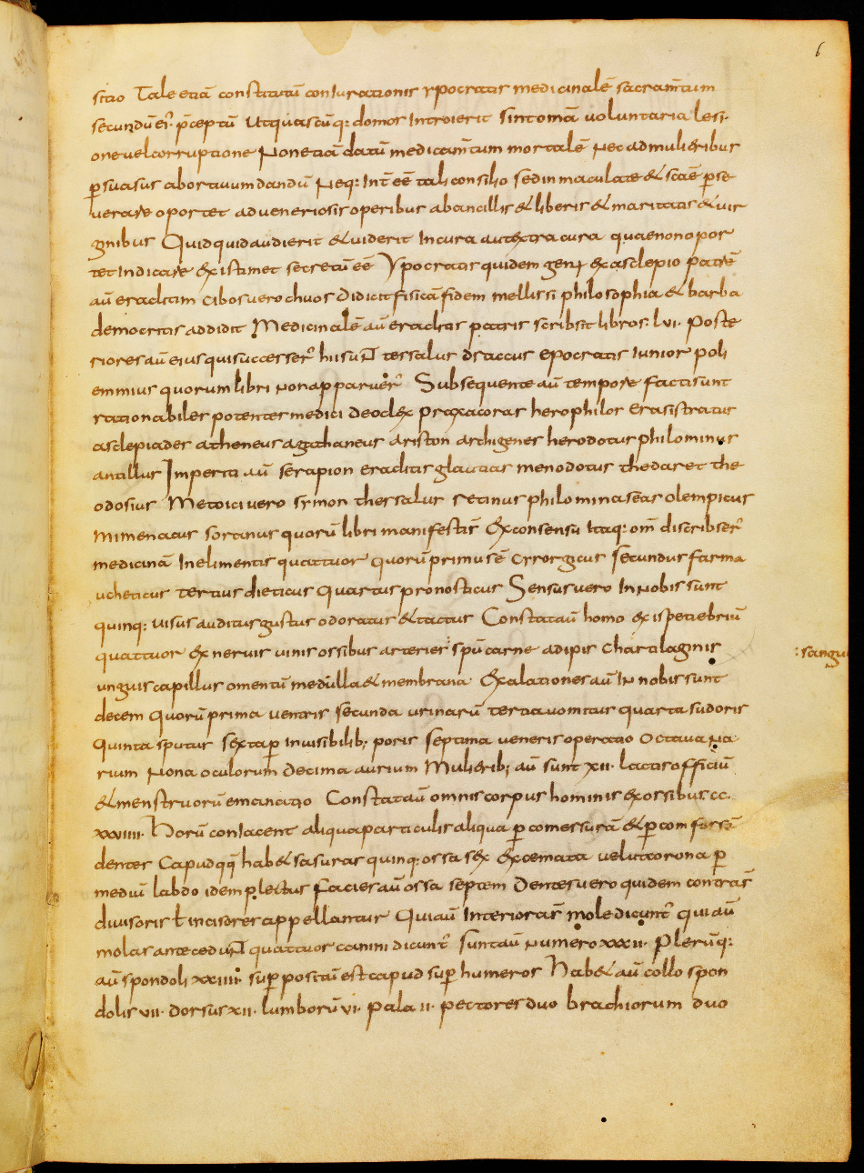 sitio Tale etiā constitutū coniurationis ypocratis medicinalē sacram̄tum
secundū ei᷒ p̄ceptū Ut quascūq: domos Introierit sint omā voluntaria lesi·
one vel corruptione Non etiā datū medicam̄tum mortalē Nec ad mulieribus
ꝑsuasus abortuum dandū Neq: Int̄ēē tali consilio sed inmaculate & sc̄āē ꝑse
verare oportet ad veneriosis operibus ab ancillis & liberis & maritatis & vir
ginibus Quidquid audierit & viderit In cura aut extra cura quae non opor
tet Indicare existimet secretū ēē Ypocratis quidem gen᷒ ex asclepio patrē
aū eraclitum cibos vero chuos Didicit fisicā fidem mellissi philosophia & barba
democritus addidit Medicinalē aū eraclitis patris scribsit libros lvi· Poste
riores aū eius qui successer᷒ hii suN̄ tessalus draccus epocratis Iunior poli
emmius quorum libri Non apparuer᷒ Subsequente aū tempore facti sunt
rationabiles potentes medici deoclex praxacoras herophilos Erasistratus
asclepiades atheneus agathaneus ariston archigenes herodotus philominus
antillus Imperiti aū serapion eraclitus glaucias menodotus thedaret the
odosius Metoici vero symon thessalus retinus philomina seās olempicus
Mimenacus soranus quorū libri manifestār̄ Ex consensu Itaq: om̄ discribser᷒
medicinā In elimentis quattuor quorū primus ē Cyrorgicus secundus farma
ucheticus tertius dieticus quartus pronosticus Sensus vero In Nobis sunt
quinq: visus auditus gustus odoratus & tactus Constat aū homo ex ispetiebriū
quattuor ex nervis vinis ossibus arteries spū carne adipis chartilaginis
:sangui
unguis capillus omentū medulla & membrana Exalationes aū IN nobis sunt
decem quorū prima ventris secunda urinarū tertia vomitus quarta sudoris
Quinta sputus sexta ꝑ Invisibilib; poris septima veneris operatio Octava Na
rium Nona oculorum Decima aurium Mulierib; aū sunt xii· lactis officiū
& menstruorū emanatio Constat aū omnis corpus hominis ex ossibus cc·
xxviiii· Horū coniacent aliqua particulis aliqua ꝑ comessurā & ꝑ com
dentes Capud qq̄ hab& sasuras quinq: ossa sex Ex cemata velut corona ꝑ
mediū labdo idem plectus facies aū ossa septem Dentes vero quidem contrār̄
divisoris ł incisores appellantur Qui aū Interiorār̄ mole dicunt᷒ qui aū
molas antecedūN̄ quattuor canini dicunt᷒ sunt aū Numero xxxii· Plerūq:
aū spondoli xxiiii· suꝑ positū est capud suꝑ humeros Hab& aū collo spon
dolis vii· dorsus xii· lumborū vi· Pala ii· pectores duo brachiorum duo